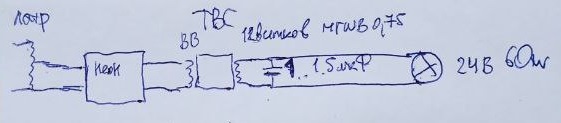 ЛАТР
неон
ВВ
ТВС
12 витков МГШВ 0,75
1..1.5 мкФ
24В 60w